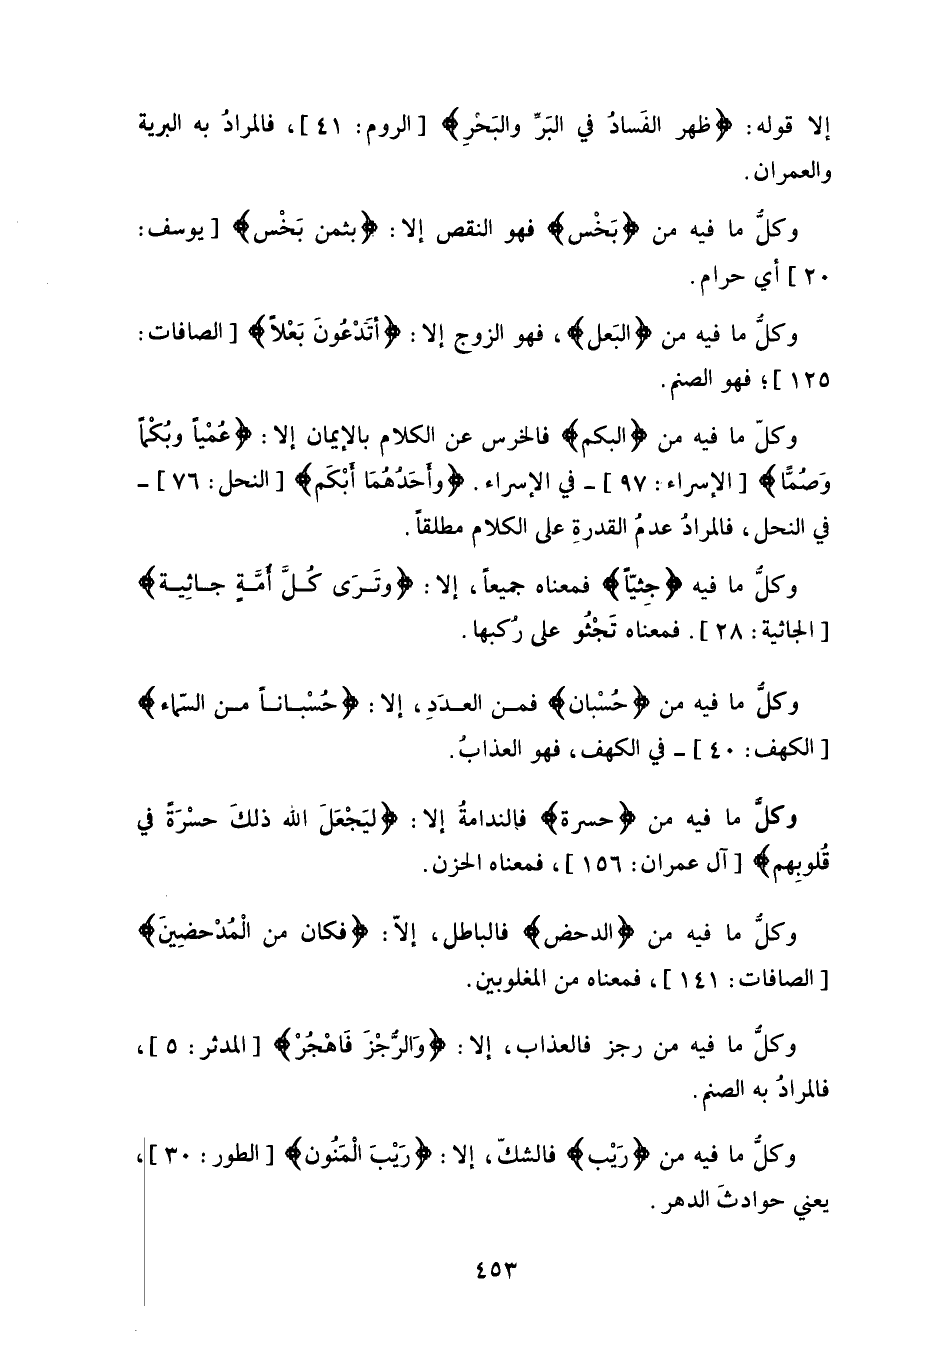 إلا قوله: ﴿ظهر الفَسادُ في البَرِّ والبَحْرِ﴾ [الروم: ٤١]، فالمرادُ به البرية
والعمران.
وكلُّ ما فيه من ﴿بَخْس﴾ فهو النقص إلا: ﴿بثمن بَخْس﴾ [يوسف:
٢٠] أي حرام.
وكلُّ ما فيه من ﴿البَعل﴾، فهو الزوج إلا: ﴿أتَدْعُونَ بَعْلاً﴾ [الصافات:
١٢٥]؛ فهو الصنم.
وكلّ ما فيه من ﴿البكم﴾ فالخرس عن الكلام بالإيمان إلا: ﴿عُمْياً وبُكْماً
وَصُمًّا﴾ [الإسراء: ٩٧] ـ في الإسراء. ﴿وأَحَدُهُمَا أَبْكَم﴾ [النحل: ٧٦] ـ
في النحل، فالمرادُ عدمُ القدرةِ على الكلام مطلقاً.
وكلُّ ما فيه ﴿جِثِيّاً﴾ فمعناه جميعاً، إلا: ﴿وتَرَى كُلَّ أُمَّةٍ جاثِية﴾
[الجاثية: ٢٨]. فمعناه تَجْثُو على رُكبها.
وكلُّ ما فيه من ﴿حُسْبان﴾ فمن العدَدِ، إلا: ﴿حُسْبانـاً من السّماء﴾
[الكهف: ٤٠] ـ في الكهف، فهو العذابُ.
وكلُّ ما فيه من ﴿حسرة﴾ فالندامةُ إلا: ﴿ليَجْعَلَ الله ذلكَ حسْرَةً في
قُلوبِهم﴾ [آل عمران: ١٥٦]، فمعناه الحزن.
وكلُّ ما فيه من ﴿الدحض﴾ فالباطل، إلاّ: ﴿فكان من الْمُدْحضِينَ﴾
[الصافات: ١٤١]، فمعناه من المغلوبين.
وكلُّ ما فيه من رجز فالعذاب، إلا: ﴿وَالرُّجْزَ فَاهْجُرْ﴾ [المدثر: ٥]،
فالمرادُ به الصنم.
وكلُّ ما فيه من ﴿رَيْب﴾ فالشكّ، إلا: ﴿رَيْبَ الْمَنُون﴾ [الطور: ٣٠]،
يعني حوادثَ الدهر.
٤٥٣